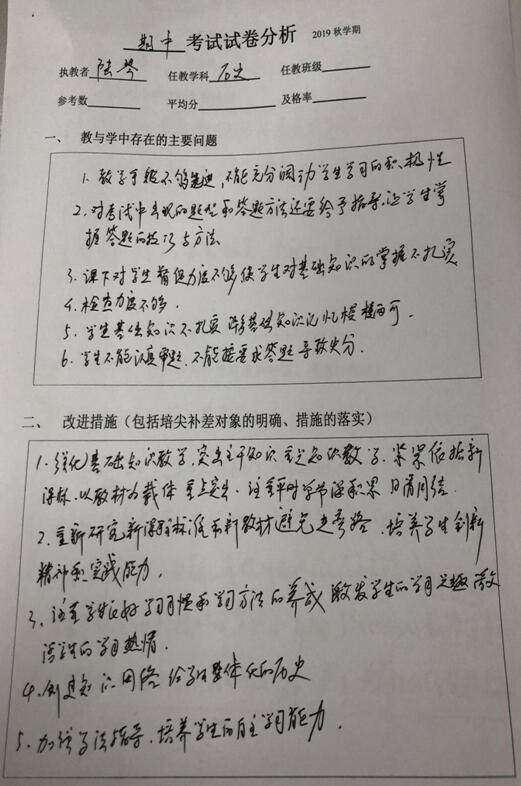 期中 考试试卷分析 2019 秋学期
执教者 陆琴 任教学科 历史 任教班级
参考数 平均分 及格率
一、 教与学中存在的主要问题
1. 教学手段不够先进，不能充分调动学生学习的积极性
2. 对考试中出现的题型和答题方法还要给予指导，让学生掌
握答题的技巧与方法
3. 课下对学生督促力度不够使学生对基础知识的掌握不扎实
4. 检查力度不够.
5. 学生基础知识不扎实 许多基础知识记忆模棱两可.
6. 学生不能认真审题，不能按要求答题 导致失分.
二、 改进措施（包括培尖补差对象的明确、措施的落实）
1. 强化基础知识教学，突出主干知识 重点知识教学. 紧紧依据新
课标，以教材为载体 重点突出. 注重平时 章节 积累 日清周结.
2. 重新研究新课程标准和新教材避免走弯路. 培养学生创新
精神和实践能力.
3. 注重学生良好学习习惯和学习方法的养成 激发学生的学习兴趣 激
学生的学习热情.
4. 创建知识网络 给学生整体化的历史
5. 加强学法指导. 培养学生的自主学习能力.